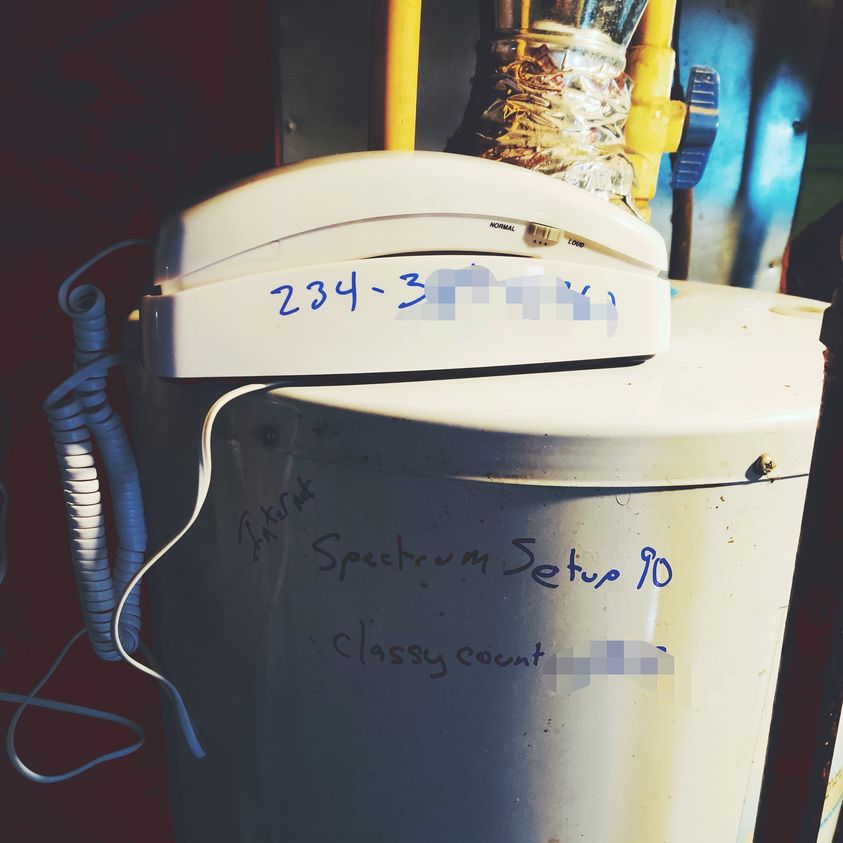 NORMAL LOUD
234-3
Internet
Spectrum Setup 90
classy count